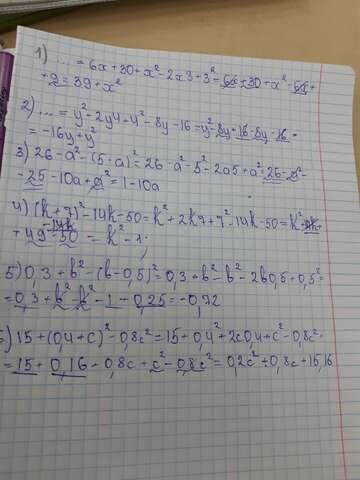 1) ... = 6x+30+x²-2x3+3²=6x+30+x²-6x+
+9=39+x²
2) ... = y²-2y4+4²-8y-16=y²-8y+16-8y-16=
= -16y+y²
3) 26-a²-(5-a)²=26-a²-5²-2a5+a²=26-a²-
-25-10a+a²=1-10a
4) (k+7)²-14k-50=k²+2k7+7²-14k-50=k²+14k-
-14k
+49-50=k²-1;
5) 0,3+b²-(b-0,5)²=0,3+b²-b²-2b0,5+0,5²=
=0,3+b²-b²-1+0,25=-0,72
) 15+(0,4+c)²-0,8c²=15+0,4²+2c0,4+c²-0,8c²=
=15+0,16+0,8c+c²-0,8c²=0,2c²+0,8c+15,16